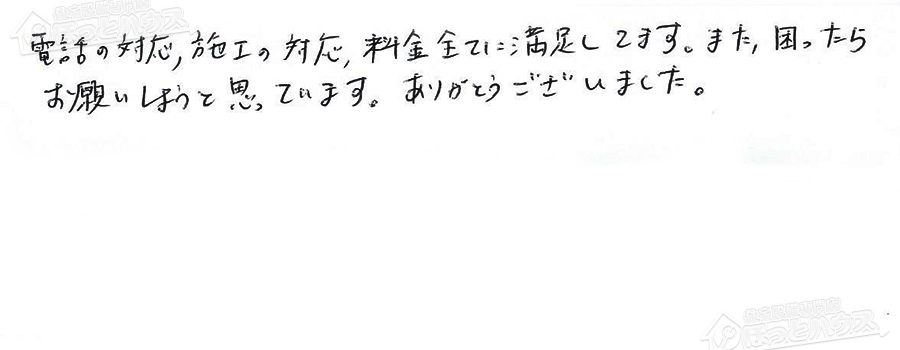 電話の対応,施工の対応,料金全てに満足してます。また,困ったら
お願いしようと思っています。ありがとうございました。
住宅設備専門店
ほっとハウス
住宅設備専門店
ほっとハウス